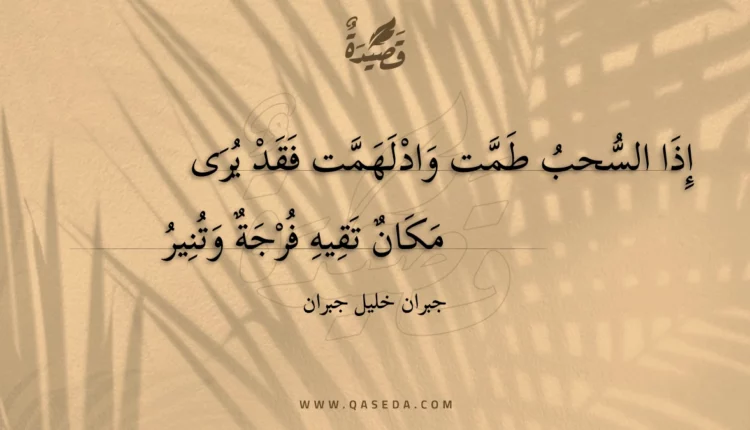 قَصِيدَةٌ
إِذَا السُّحبُ طَمَّت وَادْلَهَمَّت فَقَدْ يُرَى
مَكَانٌ تَقِيهِ فُرْجَةٌ وَتُنِيرُ
جبران خليل جبران
WWW.QASEDA.COM